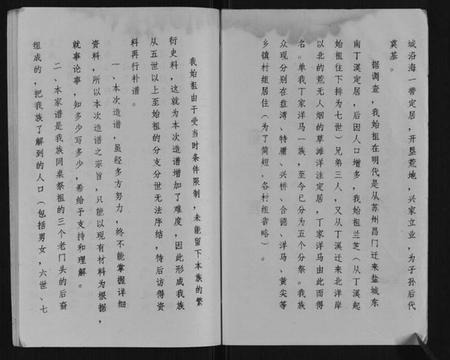 城沿海一带定居，开垦荒地，兴家立业，为子孙后代
奠基。
据调查，我始祖在明代是从苏州昌门迁来盐城东
南丁溪定居，后因人口增多，我始祖兰芝（从丁溪起
始祖住下持为七世）兄弟三人，又从丁溪迁来北洋岸
以北的荒无人烟的草滩洋洼定居，丁家洋马由此而得
名。我丁家洋马一族，至今已分为五个分祭。我族
众现分别在盘湾、特庸、兴桥、合德、洋马、黄尖等
乡镇村组居住（为了简短，各村组舍略）。
我始祖由于受当时条件限制，未能留下本族的繁
衍史料，这就为本次造谱增加了难度，因此形成我族
从五世以上至始祖的分支分世无法序结，待后访得资
料再行补谱。
一、本次造谱，虽经多方努力，终不能掌握详细
资料，所以本次造谱之宗旨，只能以现有材料为根据，
就事论事，知多少写多少，希给予支持和理解。
二、本家谱是我族同桌祭祖的三个老门头的后裔
组成的，把我族了解到的人口（包括男女，六世、七